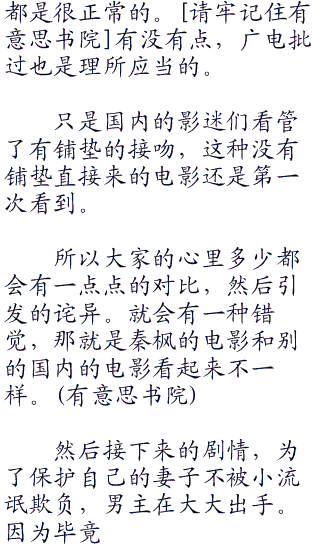 都是很正常的。[请牢记住有
意思书院]有没有点，广电批
过也是理所应当的。
只是国内的影迷们看管
了有铺垫的接吻，这种没有
铺垫直接来的电影还是第一
次看到。
所以大家的心里多少都
会有一点点的对比，然后引
发的诧异。就会有一种错
觉，那就是秦枫的电影和别
的国内的电影看起来不一
样。(有意思书院)
然后接下来的剧情，为
了保护自己的妻子不被小流
氓欺负，男主在大大出手。
因为毕竟